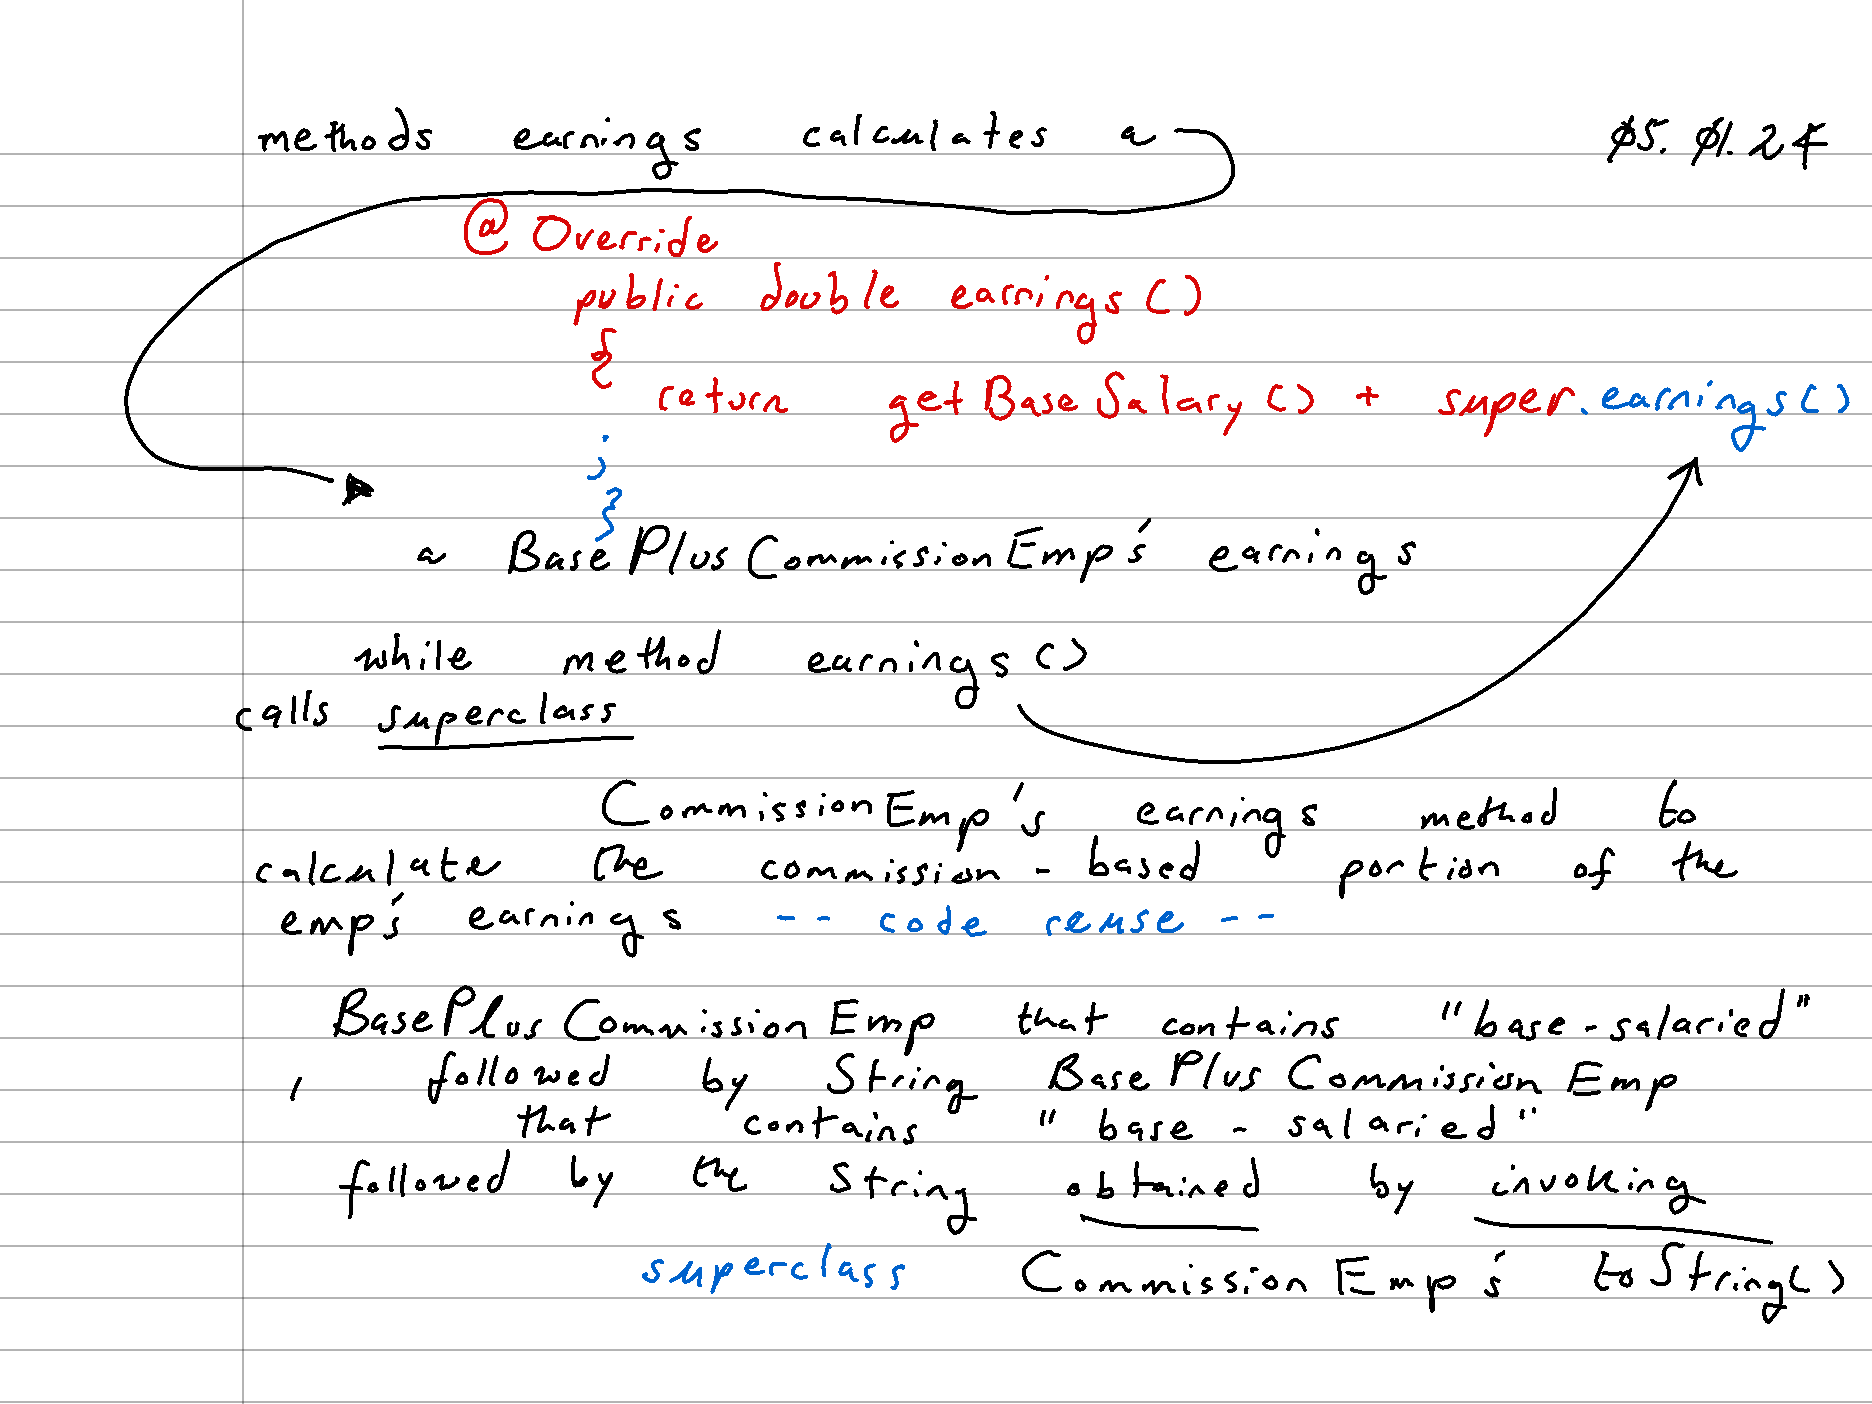 methods earnings calculates a
05.01.24
@Override
public double earnings()
{
return getBaseSalary() + super.earnings()
;
}
a BasePlusCommissionEmp's earnings
while method earnings()
calls superclass
CommissionEmp's earnings method to
calculate the commission-based portion of the
emp's earnings -- code reuse --
BasePlusCommissionEmp that contains "base-salaried"
, followed by String BasePlusCommissionEmp
that contains "base-salaried"
followed by the String obtained by invoking
superclass CommissionEmp's toString()